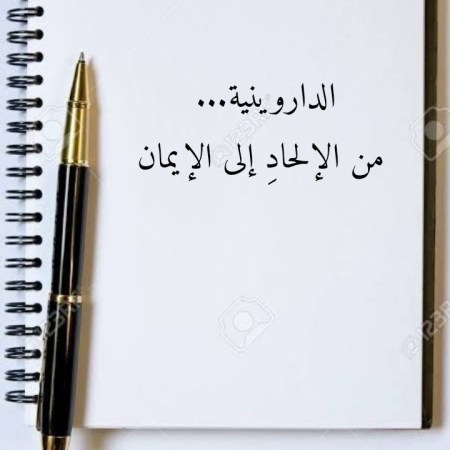 الداروينية...
من الإلحادِ إلى الإيمان